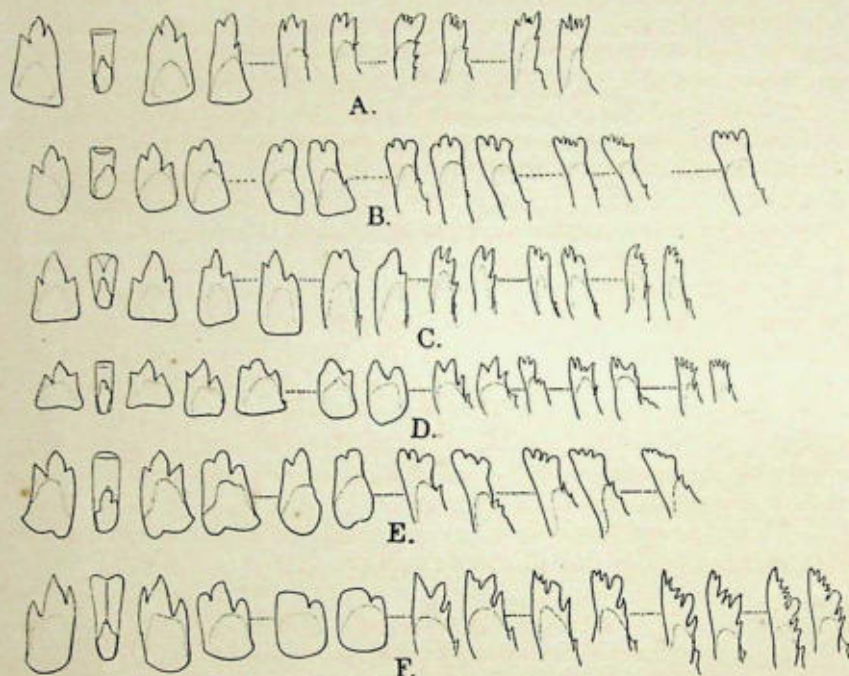 A.
B.
C.
D.
E.
F.